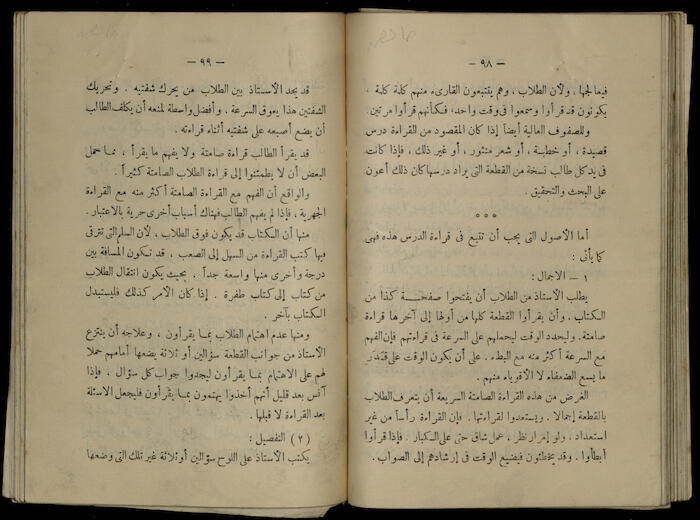 — ٩٨ —
فيعالجها، ولأن الطلاب، وهم يتتبعون القارىء منهم كلمة كلمة،
يكونون قد قرأوا وسمعوا في وقت واحد، فكأنهم قرأوا مرتين.
وللصفوف العالية أيضاً إذا كان المقصود من القراءة درس
قصيدة، أو خطبة، أو شعر منثور، أو غير ذلك، فإذا كانت
في يد كل طالب نسخة من القطعة التي يراد درسها كان ذلك أعون
على البحث والتحقيق.
***
أما الأصول التي يجب أن تتبع في قراءة الدرس هذه فهي
كما يأتي:
١ — الاجمال:
يطلب الأستاذ من الطلاب أن يفتحوا صفحة كذا من
الكتاب. وأن يقرأوا القطعة كلها من أولها إلى آخرها قراءة
صامتة. وليحدد الوقت ليحملهم على السرعة في قراءتهم فإن الفهم
مع السرعة أكثر منه مع البطء. على أن يكون الوقت على قدر
ما يسع الضعفاء لا الأقوياء منهم.
الغرض من هذه القراءة الصامتة السريعة أن يتعرف الطلاب
بالقطعة إجمالا. ويستعدوا لقراءتها. فإن القراءة رأساً من غير
استعداد، ولو إمرار نظر، عمل شاق حتى على الكبار. فإذا قرأوا
أبطأوا. وقد يخطئون فيضيع الوقت في إرشادهم إلى الصواب.
— ٩٩ —
قد يجد الأستاذ بين الطلاب من يحرك شفتيه. وتحريك
الشفتين هذا يعوق السرعة. وأفضل واسطة لمنعه أن يكلف الطالب
أن يضع أصبعه على شفتيه أثناء قراءته.
قد يقرأ الطالب قراءة صامتة ولا يفهم ما يقرأ، مما حمل
البعض أن لا يطمئنوا إلى قراءة الطلاب الصامتة كثيراً.
والواقع أن الفهم مع القراءة الصامتة أكثر منه مع القراءة
الجهرية، فإذا لم يفهم الطالب فهناك أسباب أخرى حرية بالاعتبار.
منها أن الكتاب قد يكون فوق الطلاب، لأن السلم التي تترقى
فيها كتب القراءة من السهل إلى الصعب، قد تكون المسافة بين
درجة وأخرى منها واسعة جداً، بحيث يكون انتقال الطلاب
من كتاب إلى كتاب طفرة. إذا كان الأمر كذلك فليستبدل
الكتاب بآخر.
ومنها عدم اهتمام الطلاب بما يقرأون، وعلاجه أن ينتزع
الأستاذ من جوانب القطعة سؤالين أو ثلاثة يضعها أمامهم حملا
لهم على الاهتمام بما يقرأون ليجدوا جواب كل سؤال، فإذا
آنس بعد قليل أنهم أخذوا يهتمون بما يقرأون فليجعل الاسئلة
بعد القراءة لا قبلها.
(٢) التفصيل:
يكتب الأستاذ على اللوح سؤالين أو ثلاثة غير تلك التي وضعها